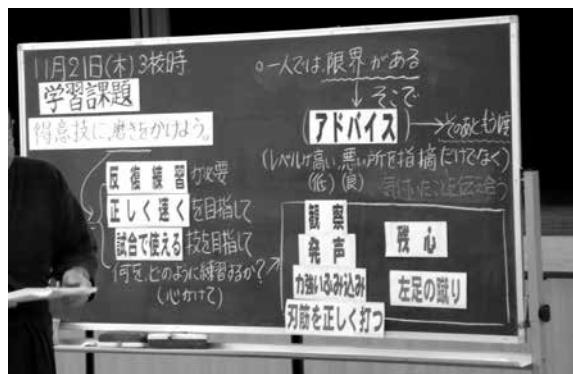 11月21日(木)3校時
学習課題
得意技に磨きをかけよう。
反復練習が必要
正しく速くを目指して
試合で使える技を目指して
何を、どのように練習するか?
(心がけて)
○一人では、限界がある
そこで
(アドバイス)→そのあともう1度
(レベルが高い、悪い所を指摘だけでなく)
(低)(良)
気付いたことを伝え合う
観察
発声
力強いふみ込み
刃筋を正しく打つ
残心
左足の蹴り